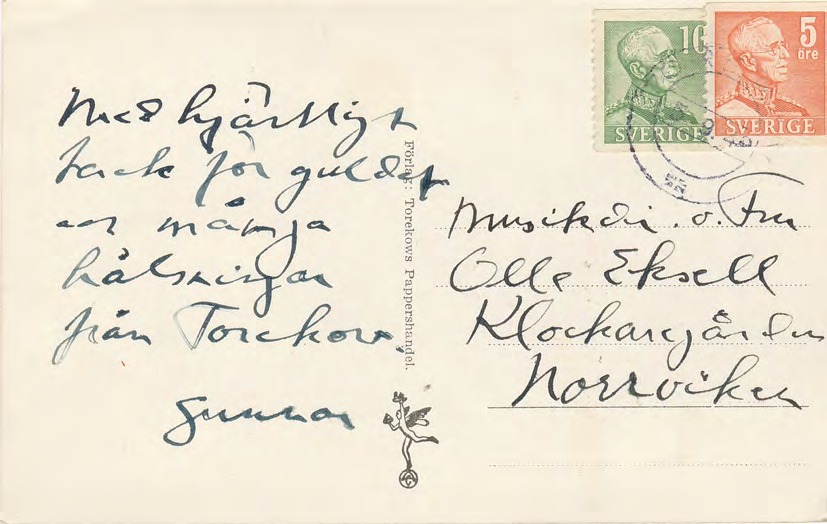 Med hjärtligt
tack för guldet
och många
hälsningar
från Torekov.
Gunnar
Förlag: Torekows Pappershandel.
10
SVERIGE
5
öre
SVERIGE
Musikdir. o. Fru
Olle Eksell
Klockaregården
Norrviken